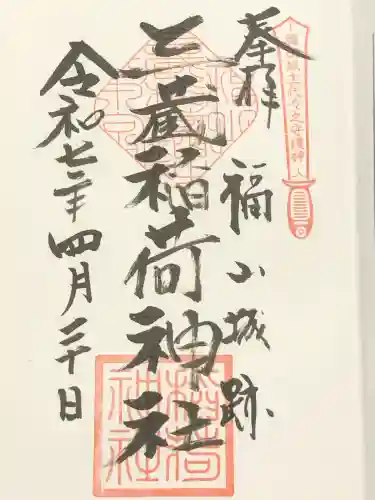 奉拝
福山城跡
三蔵稲荷神社
令和七年四月二十日
福山城主代々之守護神
稲荷神社